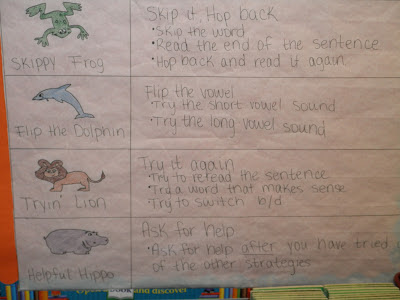 Skippy Frog
Skip it, Hop back
•Skip the word
•Read the end of the sentence
•Hop back and read it again.
Flip the Dolphin
Flip the vowel
•Try the short vowel sound
•Try the long vowel sound
Tryin' Lion
Try it again
•Try to reread the sentence
•Try a word that makes sense
•Try to switch b/d
Helpful Hippo
Ask for help
•Ask for help after you have tried
of the other strategies
book and discover